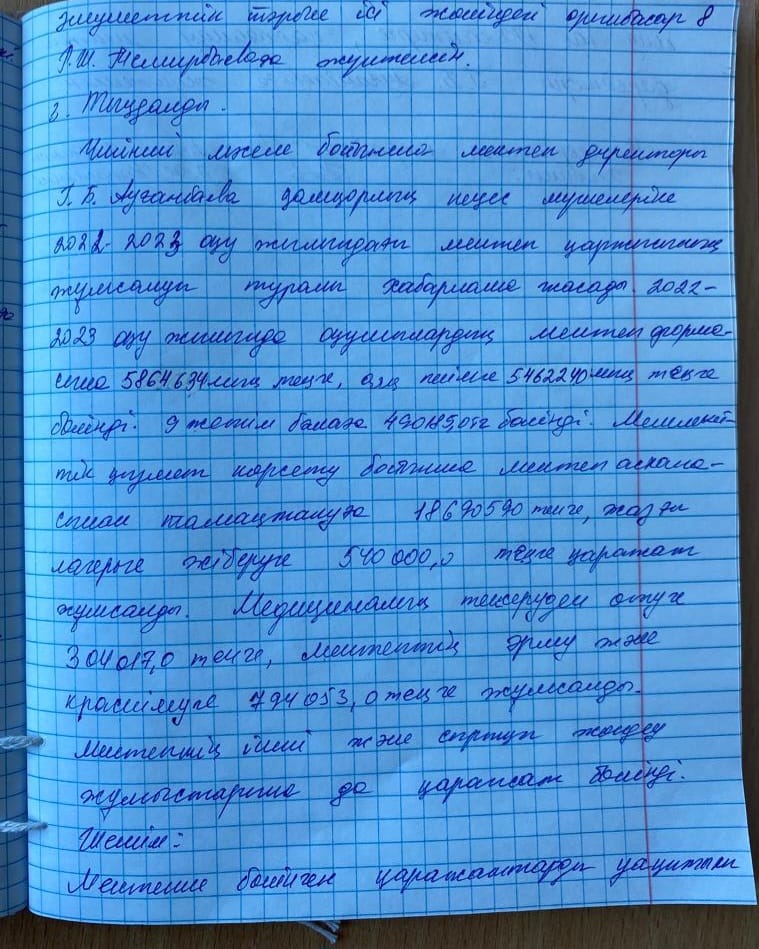 Әлеуметтік тәрбие ісі жөніндегі орынбасар
Р.Ш. Темирбаевага жүктелсін.
2. Тыңдалды.
Үшінші мәселе бойынша мектеп директоры
Г.Б. Ауганбаева қамқорлық кеңес мүшелеріне
2022-2023 оқу жылындағы мектеп қаржысының
жұмсалуы туралы хабарлама жасады. 2022-
2023 оқу жылында оқушылардың мектеп форма-
сына 5864634мың теңге, аяқ киіміне 5462240мың теңге
бөлінді. 9 жетім балаға бөлінді. Мемлекет-
тік қызмет көрсету бойынша мектеп асхана-
сынан тамақтануға 18690590 теңге, жазғы
лагерьге жіберуге 540000,0 теңге қаражат
жұмсалды. Медициналық тексеруден өтуге
304017,0 теңге, мектептің әрлеу және
краскілеуге 794053,0 теңге жұмсалды.
Мектептің іші және сыртын жөндеу
жұмыстарына да қаражат бөлінді.
Шешім:
Мектепке бөлінген қаражаттарды уақытылы